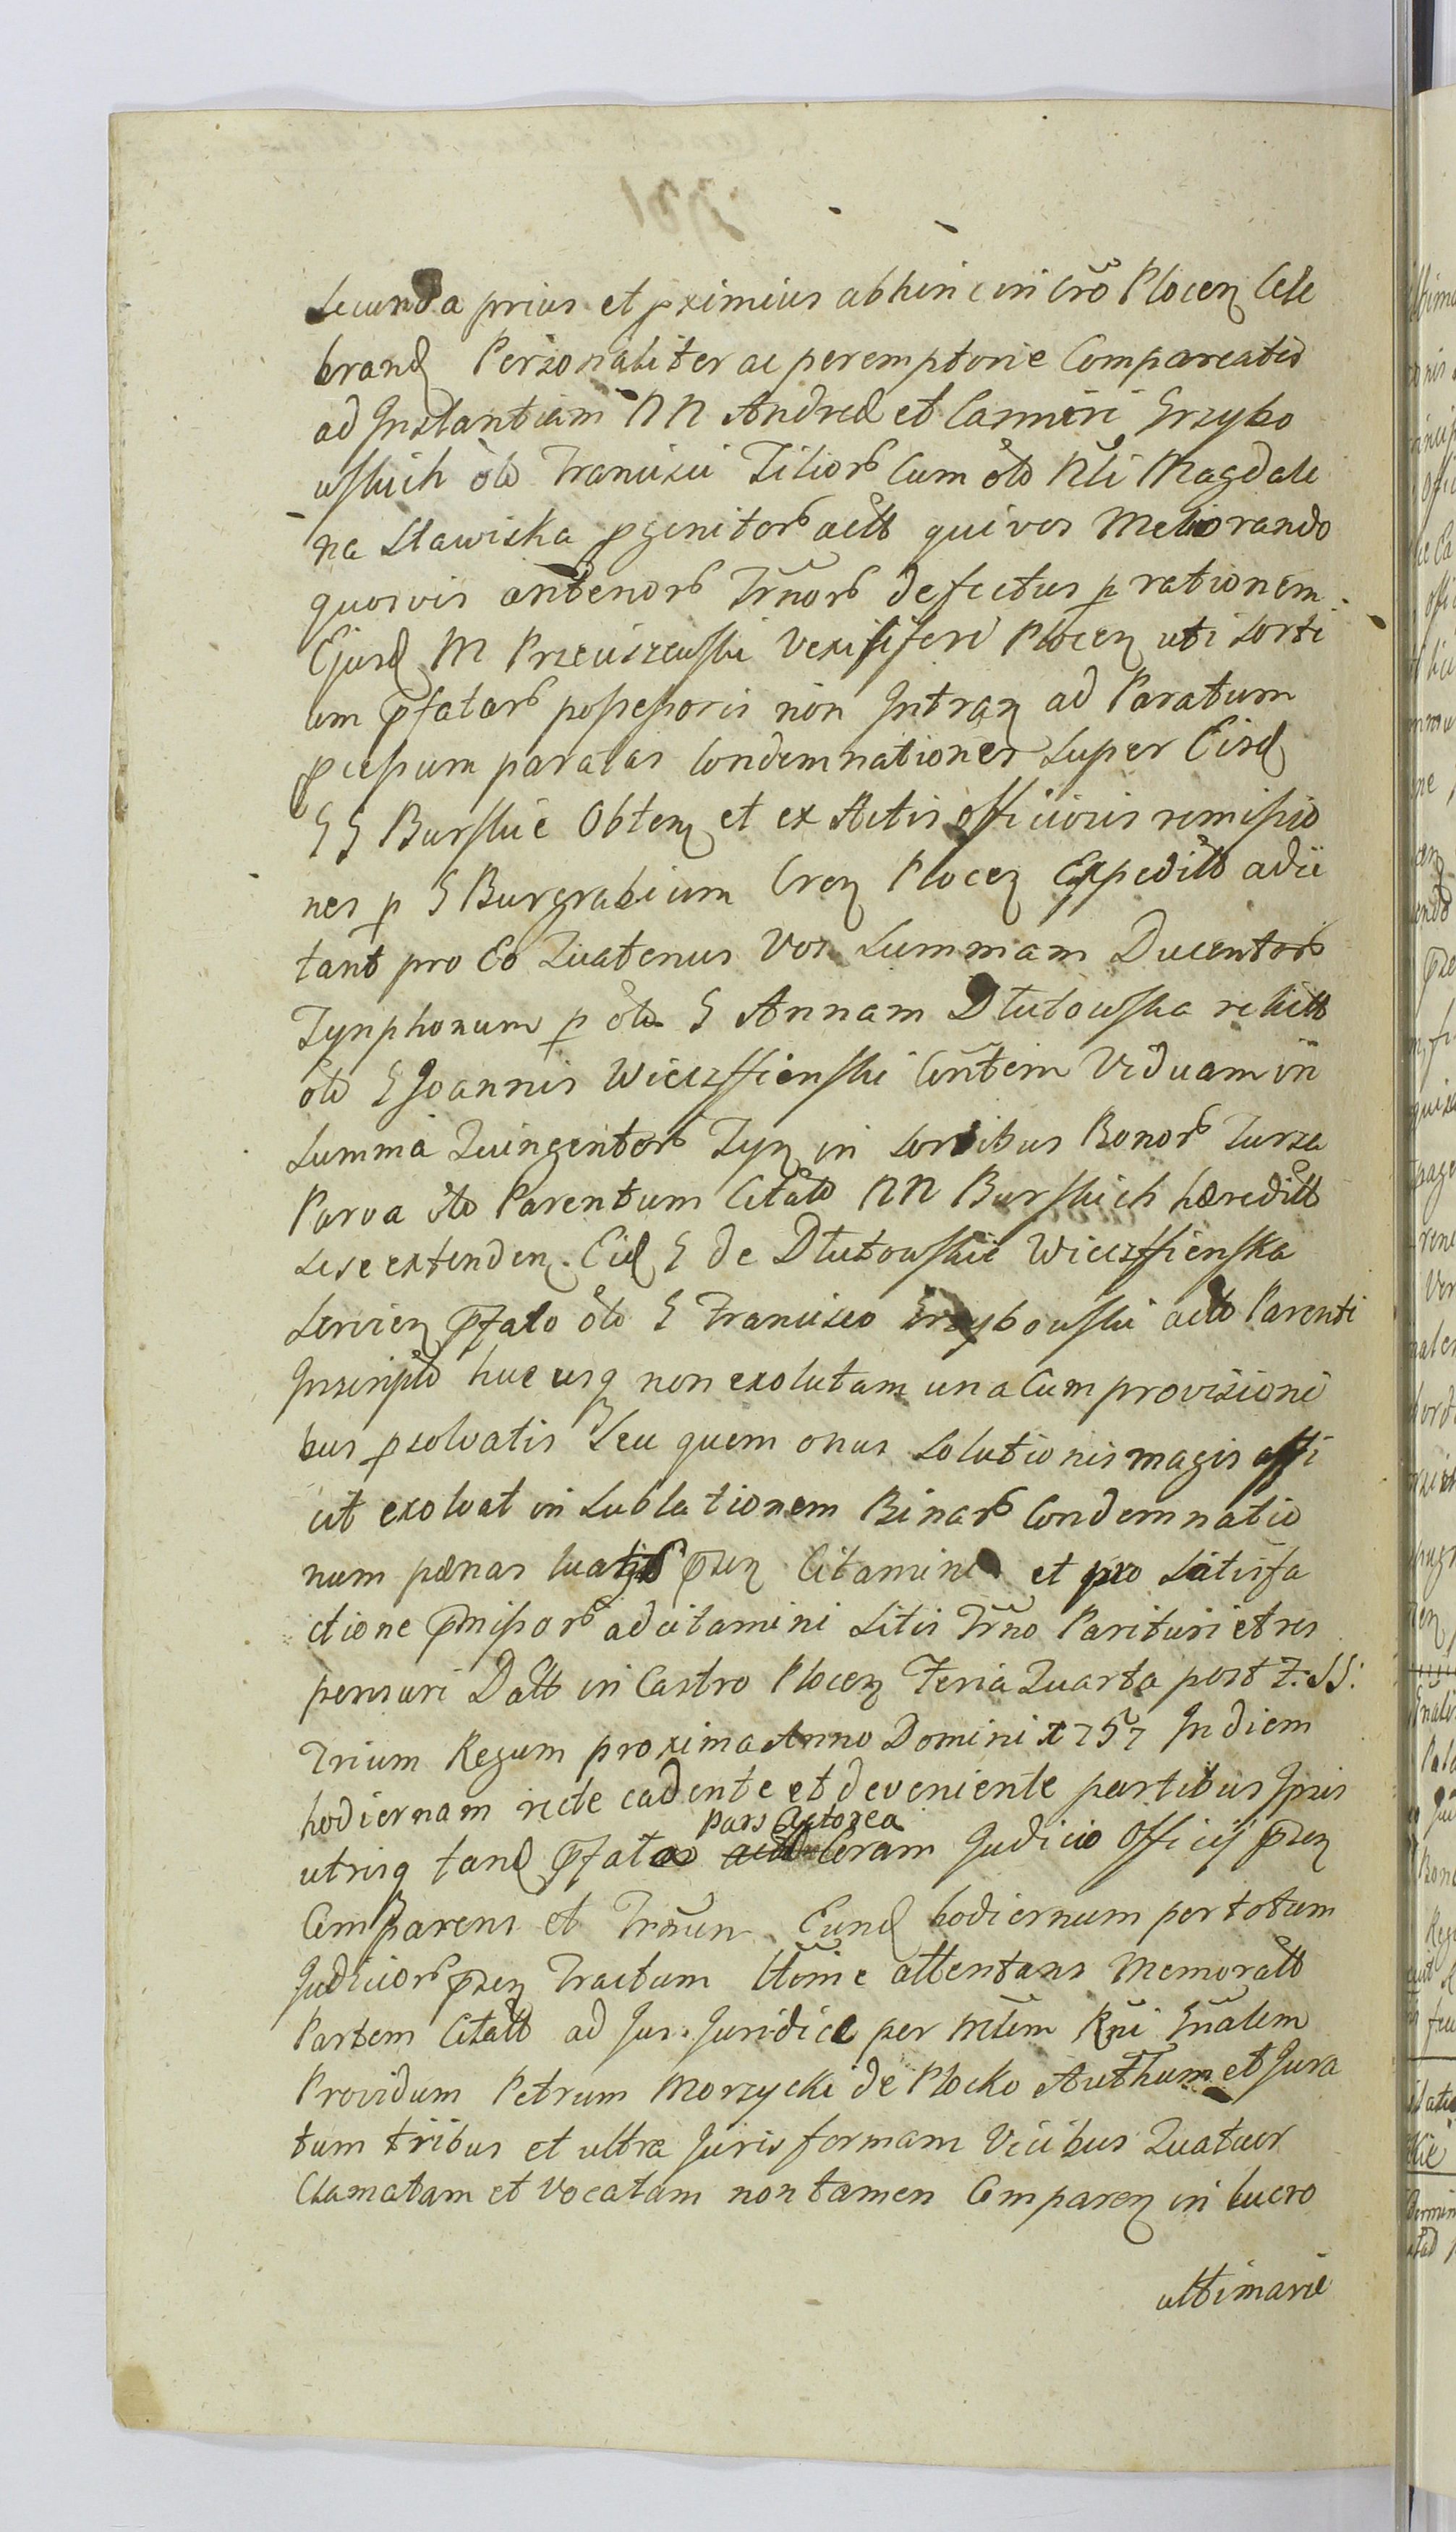 Secunda prius et pximius abhinc in Cro Plocen Cele
brand Personaliter ac peremptorie Compareatis
ad Instantiam NN Andreæ et Casimiri Grzybo
wskich olo Francisci Filiorb Cum olo Nli Magdale
na Sławiska pgenitorb actt qui vos Meliorando
quosvis anteriorb Trnorb defectus p rationem
Ejusd M Przeciszewski Vexilliferi Plocen uti Sorti
um pfatarb possessoris non Intran ad Paratum
pcessum paratas Condemnationes Super Eisd
GG Burskie Obten et ex Actis officiosis remissio
nes p G Burgrabium Cren Plocen Expeditt adci
tant pro Eo Quatenus Vos Summam Ducentorb
Tynphonum p olo G Annam Dłutowska relictt
olo G Joannis Wieczffienski Contem Viduam in
Summa Quingentorb Tyn in Sortibus Bonorb Turza
Parva olo Parentum Citato NN Burskich hæreditt
Sese extenden. Eid G de Dłutowskie Wieczffienska
Servien pfato olo G Francisco Grzybowski acto Parenti
Inscripto huc usq non exolutam una Cum provisioni
bus psolvatis Seu quem onus Solutionis magis affi
cit exolvat in Sublationem Binarb Condemnatio
num pænas luatis psen Citamine et pro Satisfa
ctione pmissorb adcitamini Sitis Trno Parituri et res
pensuri Datt in Castro Plocen Feria Quarta post F: SS:
Trium Regum proxima Anno Domini 1757 In diem
hodiernam recte cadente et deveniente partibus Ipsis
Pars Actorea
utrisq tand pfatas Coram Judicio Officij psen
Comparens et Trnun Eund hodiernum per totum
Judiciorb psen Tractum Ltime attentans Memoratt
Partem Citatt ad Jus. Juridice per Mlem Rni Gnalem
Providum Petrum Morzycki de Płocko Authum et Jura
tum tribus et ultra Juris formam Vicibus Quatuor
Clamatam et Vocatam non tamen Comparen in lucro
ultimarie